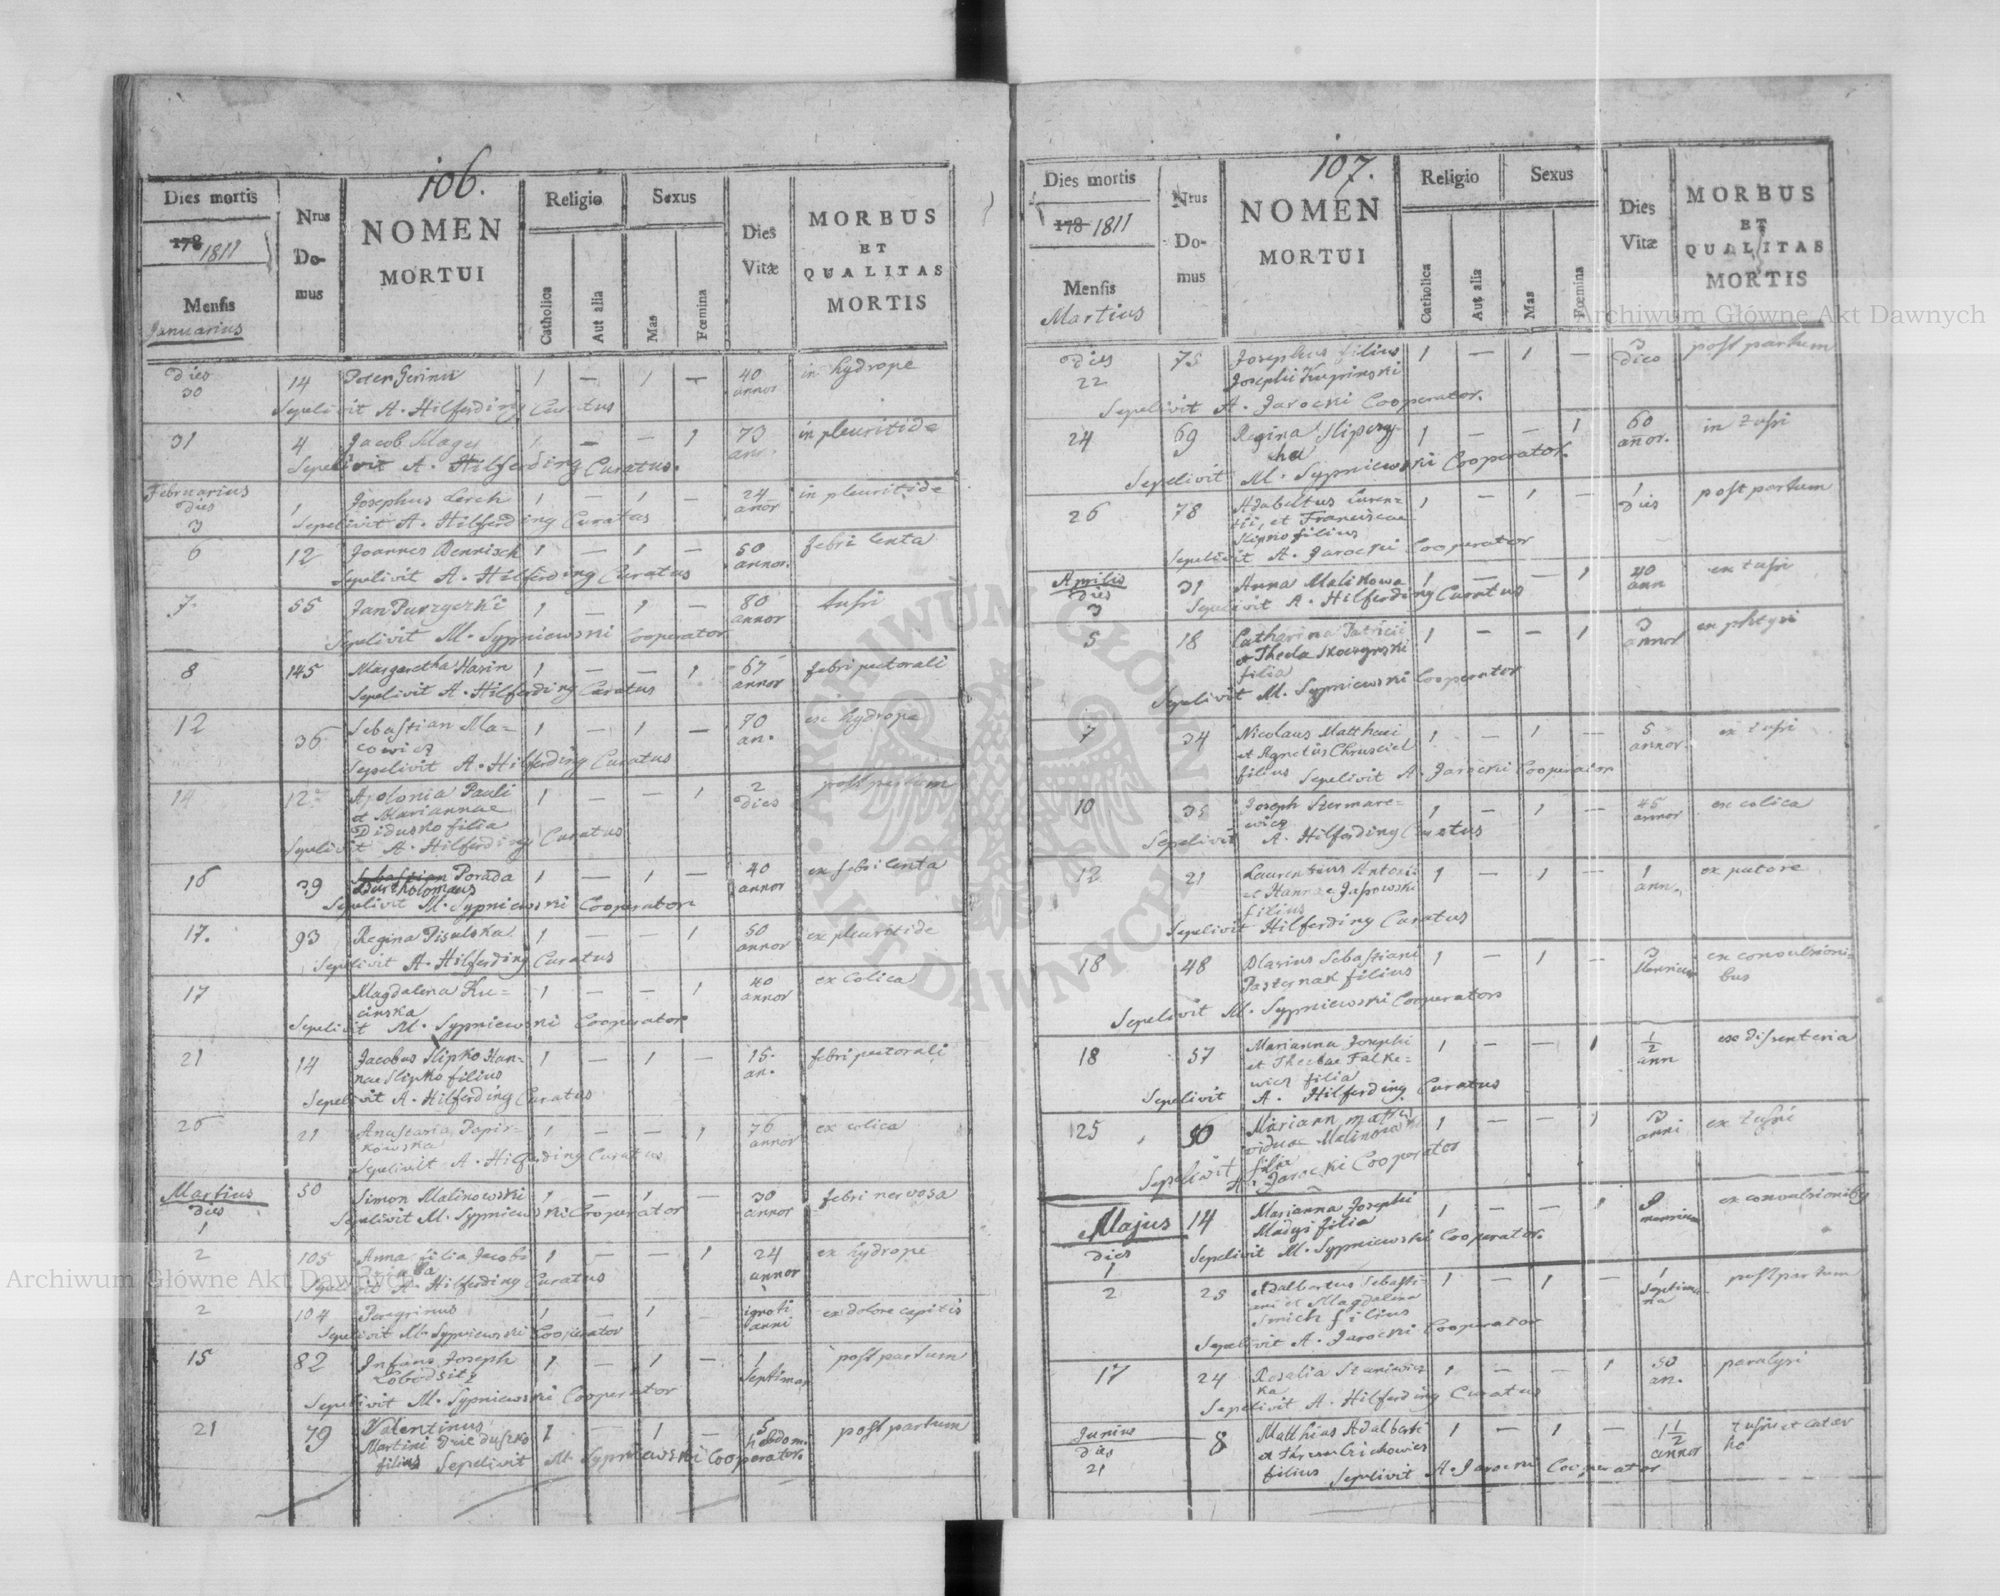 106.
Dies mortis
178 1811
Mensis
Januarius
Nrus
Do-
mus
NOMEN
MORTUI
Religio
Catholica
Aut alia
Sexus
Mas
Fœmina
Dies
Vitæ
MORBUS
ET
QUALITAS
MORTIS
Dies
30 14 Peter 1 — 1 — 40 annor in hydrope
Sepelivit A. Hilferding Curatus
31 4 Jacob 1 — — 1 73 ann. in pleuritide
Sepelivit A. Hilferding Curatus.
Februarius
Dies
3 1 Josephus Lerch 1 — 1 — 24 anor in pleuritide
Sepelivit A. Hilferding Curatus
6 12 Joannes Dennisch 1 — 1 — 50 annor. febri lenta
Sepelivit A. Hilferding Curatus
7. 55 Jan 1 — 1 — 80 annor tussi
Sepelivit M. Sypniewski Cooperator
8 145 Margaretha Hasin 1 — — 1 67 annor febri pectorali
Sepelivit A. Hilferding Curatus
12 36 Sebastian Ma-
cowicz 1 — 1 — 70 an. ex hydrope
Sepelivit A. Hilferding Curatus
14 127 Apolonia Pauli
et Mariannae
Didusko filia 1 — — 1 2 dies post partum
Sepelivit A. Hilferding Curatus
16 39 Sebastian Porada
Bartholomaus 1 — 1 — 40 annor ex febri lenta
Sepelivit M. Sypniewski Cooperator
17. 93 Regina Pisulska 1 — — 1 50 annor ex pleuritide
Sepelivit A. Hilferding Curatus
17 Magdalena Ku-
cinska 1 — — 1 40 annor ex Colica
Sepelivit M. Sypniewski Cooperator
21 14 Jacobus Slipko Han-
nae Slipko filius 1 — 1 — 15. an. febri pectorali
Sepelivit A. Hilferding Curatus
26 21 Anastasia Papir-
kowska 1 — — 1 76 annor ex colica
Sepelivit A. Hilferding Curatus
Martius
dies
1 50 Simon Malinowski 1 — 1 — 30 annor febri nervosa
Sepelivit M. Sypniewski Cooperator
2 105 Anna filia Jacobi 1 — — 1 24 annor ex hydrope
Sepelivit A. Hilferding Curatus
2 104 Peregrinus 1 — 1 ignoti anni ex dolore capitis
Sepelivit M. Sypniewski Cooperator
15 82 Infans Joseph
Lobodsitz 1 — 1 — 1 Septiman post partum
Sepelivit M. Sypniewski Cooperator
21 79 Valentinus
Martini Dzieduszko
filius 1 — 1 — 5 hebdom. post partum
Sepelivit M. Sypniewski Cooperator.
107.
Dies mortis
178 1811
Mensis
Martius
Nrus
Do-
mus
NOMEN
MORTUI
Religio
Catholica
Aut alia
Sexus
Mas
Fœmina
Dies
Vitæ
MORBUS
ET
QUALITAS
MORTIS
Dies
22 75 Josephus filius
Josephi Kuprinski 1 — 1 — 3 dies post partum
Sepelivit A. Jarocki Cooperator.
24 69 Regina 1 — — 1 60 anor. in tussi
Sepelivit M. Sypniewski Cooperator.
26 78 Adalbertus Lauren-
tii, et Franciscae
Slipko filius 1 — 1 — 1 dies post partum
Sepelivit A. Jarocki Cooperator
Aprilis
Dies
3 31 Anna Malikowa 1 — — 1 40 ann ex tussi
Sepelivit A. Hilferding Curatus
5 18 Catharina Patricii
et Thecla
filia 1 — — 1 3 annor ex phtysi
Sepelivit M. Sypniewski Cooperator
7 34 Nicolaus Matthaei
et Agnetis Chrusciel
filius 1 — 1 — 5 annor. ex tussi
Sepelivit A. Jarocki Cooperator
10 35 Joseph Szermare-
wicz 1 — 1 — 45 annor ex colica
Sepelivit A. Hilferding Curatus
12 21 Laurentius Antoni
et Hannae
filius 1 — 1 — 1 ann.
Sepelivit Hilferding Curatus
18 48 Blasius Sebastiani
Pasternak filius 1 — 1 — 3 ex convulsioni-
bus
Sepelivit M. Sypniewski Cooperators
18 57 Marianna Josephi
et Theclae Falke-
wicz filia 1 — — 1 1/2 ann ex dissenteria
Sepelivit A. Hilferding Curatus
25 56 Mariann
viduae Malinowa
filia 1 — — 1 3 anni ex tussi
Sepelivit A. Jarocki Cooperator
Majus
dies
1 14 Marianna Josephi
Madyi filia 1 — — 1 9 ex convulsionibg
Sepelivit M. Sypniewski Cooperator.
2 25 Adalbertus Sebasti-
ani et Magdalena
Smich filius 1 — 1 — 1 Septima-
na post partum
Sepelivit A. Jarocki Cooperator
17 24 Rosalia Staniewicz
ka 1 — — 1 50 an. paralysi
Sepelivit A. Hilferding Curatus
Junius
dies
21 8 Matthias Adalberti
et Cichowicz
filius 1 — 1 — 1 1/2 annor tussi et catar
ho
Sepelivit A. Jarocki Cooperator
Archiwum Główne Akt Dawnych
Archiwum Główne Akt Dawnych
ARCHIWUM GŁÓWNE AKT DAWNYCH